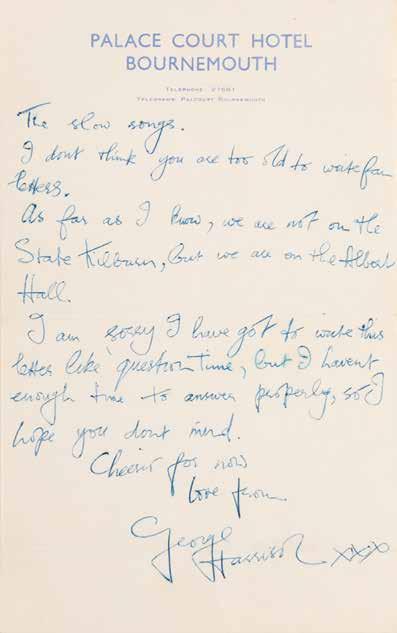 PALACE COURT HOTEL
BOURNEMOUTH
TELEPHONE: 27681
TELEGRAMS: PALCOURT BOURNEMOUTH
The slow songs.
I dont think you are too old to write fan
letters.
As far as I know, we are not on the
State Kilburn, but we are on the Albert
Hall.
I am sorry I have got to write this
letter like question time, but I havent
enough time to answer properly, so I
hope you dont mind.
Cheerio for now
love from
George
Harrison xxx